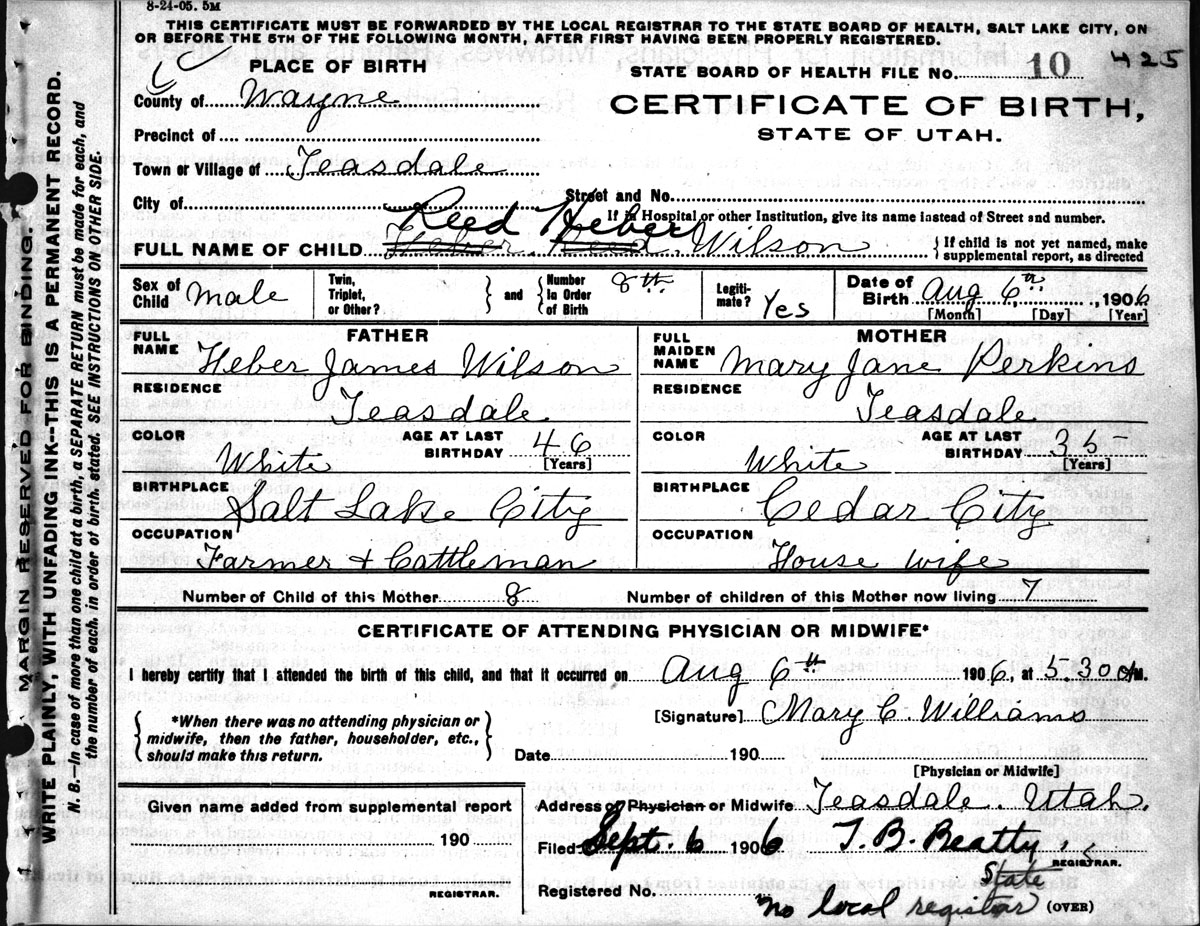 8-24-05. 5M
THIS CERTIFICATE MUST BE FORWARDED BY THE LOCAL REGISTRAR TO THE STATE BOARD OF HEALTH, SALT LAKE CITY, ON
OR BEFORE THE 5TH OF THE FOLLOWING MONTH, AFTER FIRST HAVING BEEN PROPERLY REGISTERED.
MARGIN RESERVED FOR BINDING.
WRITE PLAINLY, WITH UNFADING INK--THIS IS A PERMANENT RECORD.
N. B.—In case of more than one child at a birth, a SEPARATE RETURN must be made for each, and
the number of each, in order of birth, stated. SEE INSTRUCTIONS ON OTHER SIDE.
PLACE OF BIRTH
STATE BOARD OF HEALTH FILE No. 10 425
County of Wayne
CERTIFICATE OF BIRTH,
STATE OF UTAH.
Precinct of
Town or Village of Teasdale
City of Street and No.
If in Hospital or other Institution, give its name instead of Street and number.
Reed Heber
FULL NAME OF CHILD Heber Reed Wilson
If child is not yet named, make
supplemental report, as directed
Sex of Child Male
Twin, Triplet, or Other? and Number In Order of Birth 8th
Legitimate? Yes
Date of Birth Aug 6th, 1906
[Month] [Day] [Year]
FATHER
FULL NAME Heber James Wilson
RESIDENCE
Teasdale
COLOR White AGE AT LAST BIRTHDAY 46
[Years]
BIRTHPLACE
Salt Lake City
OCCUPATION
Farmer + Cattleman
MOTHER
FULL MAIDEN NAME Mary Jane Perkins
RESIDENCE
Teasdale
COLOR White AGE AT LAST BIRTHDAY 35
[Years]
BIRTHPLACE
Cedar City
OCCUPATION
House wife
Number of Child of this Mother 8 Number of children of this Mother now living 7
CERTIFICATE OF ATTENDING PHYSICIAN OR MIDWIFE*
I hereby certify that I attended the birth of this child, and that it occurred on Aug 6th 1906, at 5.30 M.
*When there was no attending physician or
midwife, then the father, householder, etc.,
should make this return.
[Signature] Mary C. Williams
Date 190
[Physician or Midwife]
Given name added from supplemental report
190
REGISTRAR.
Address of Physician or Midwife Teasdale. Utah.
Filed Sept. 6 1906 T. B. Beatty,
REGISTRAR.
State
Registered No.
no local registrar (OVER)